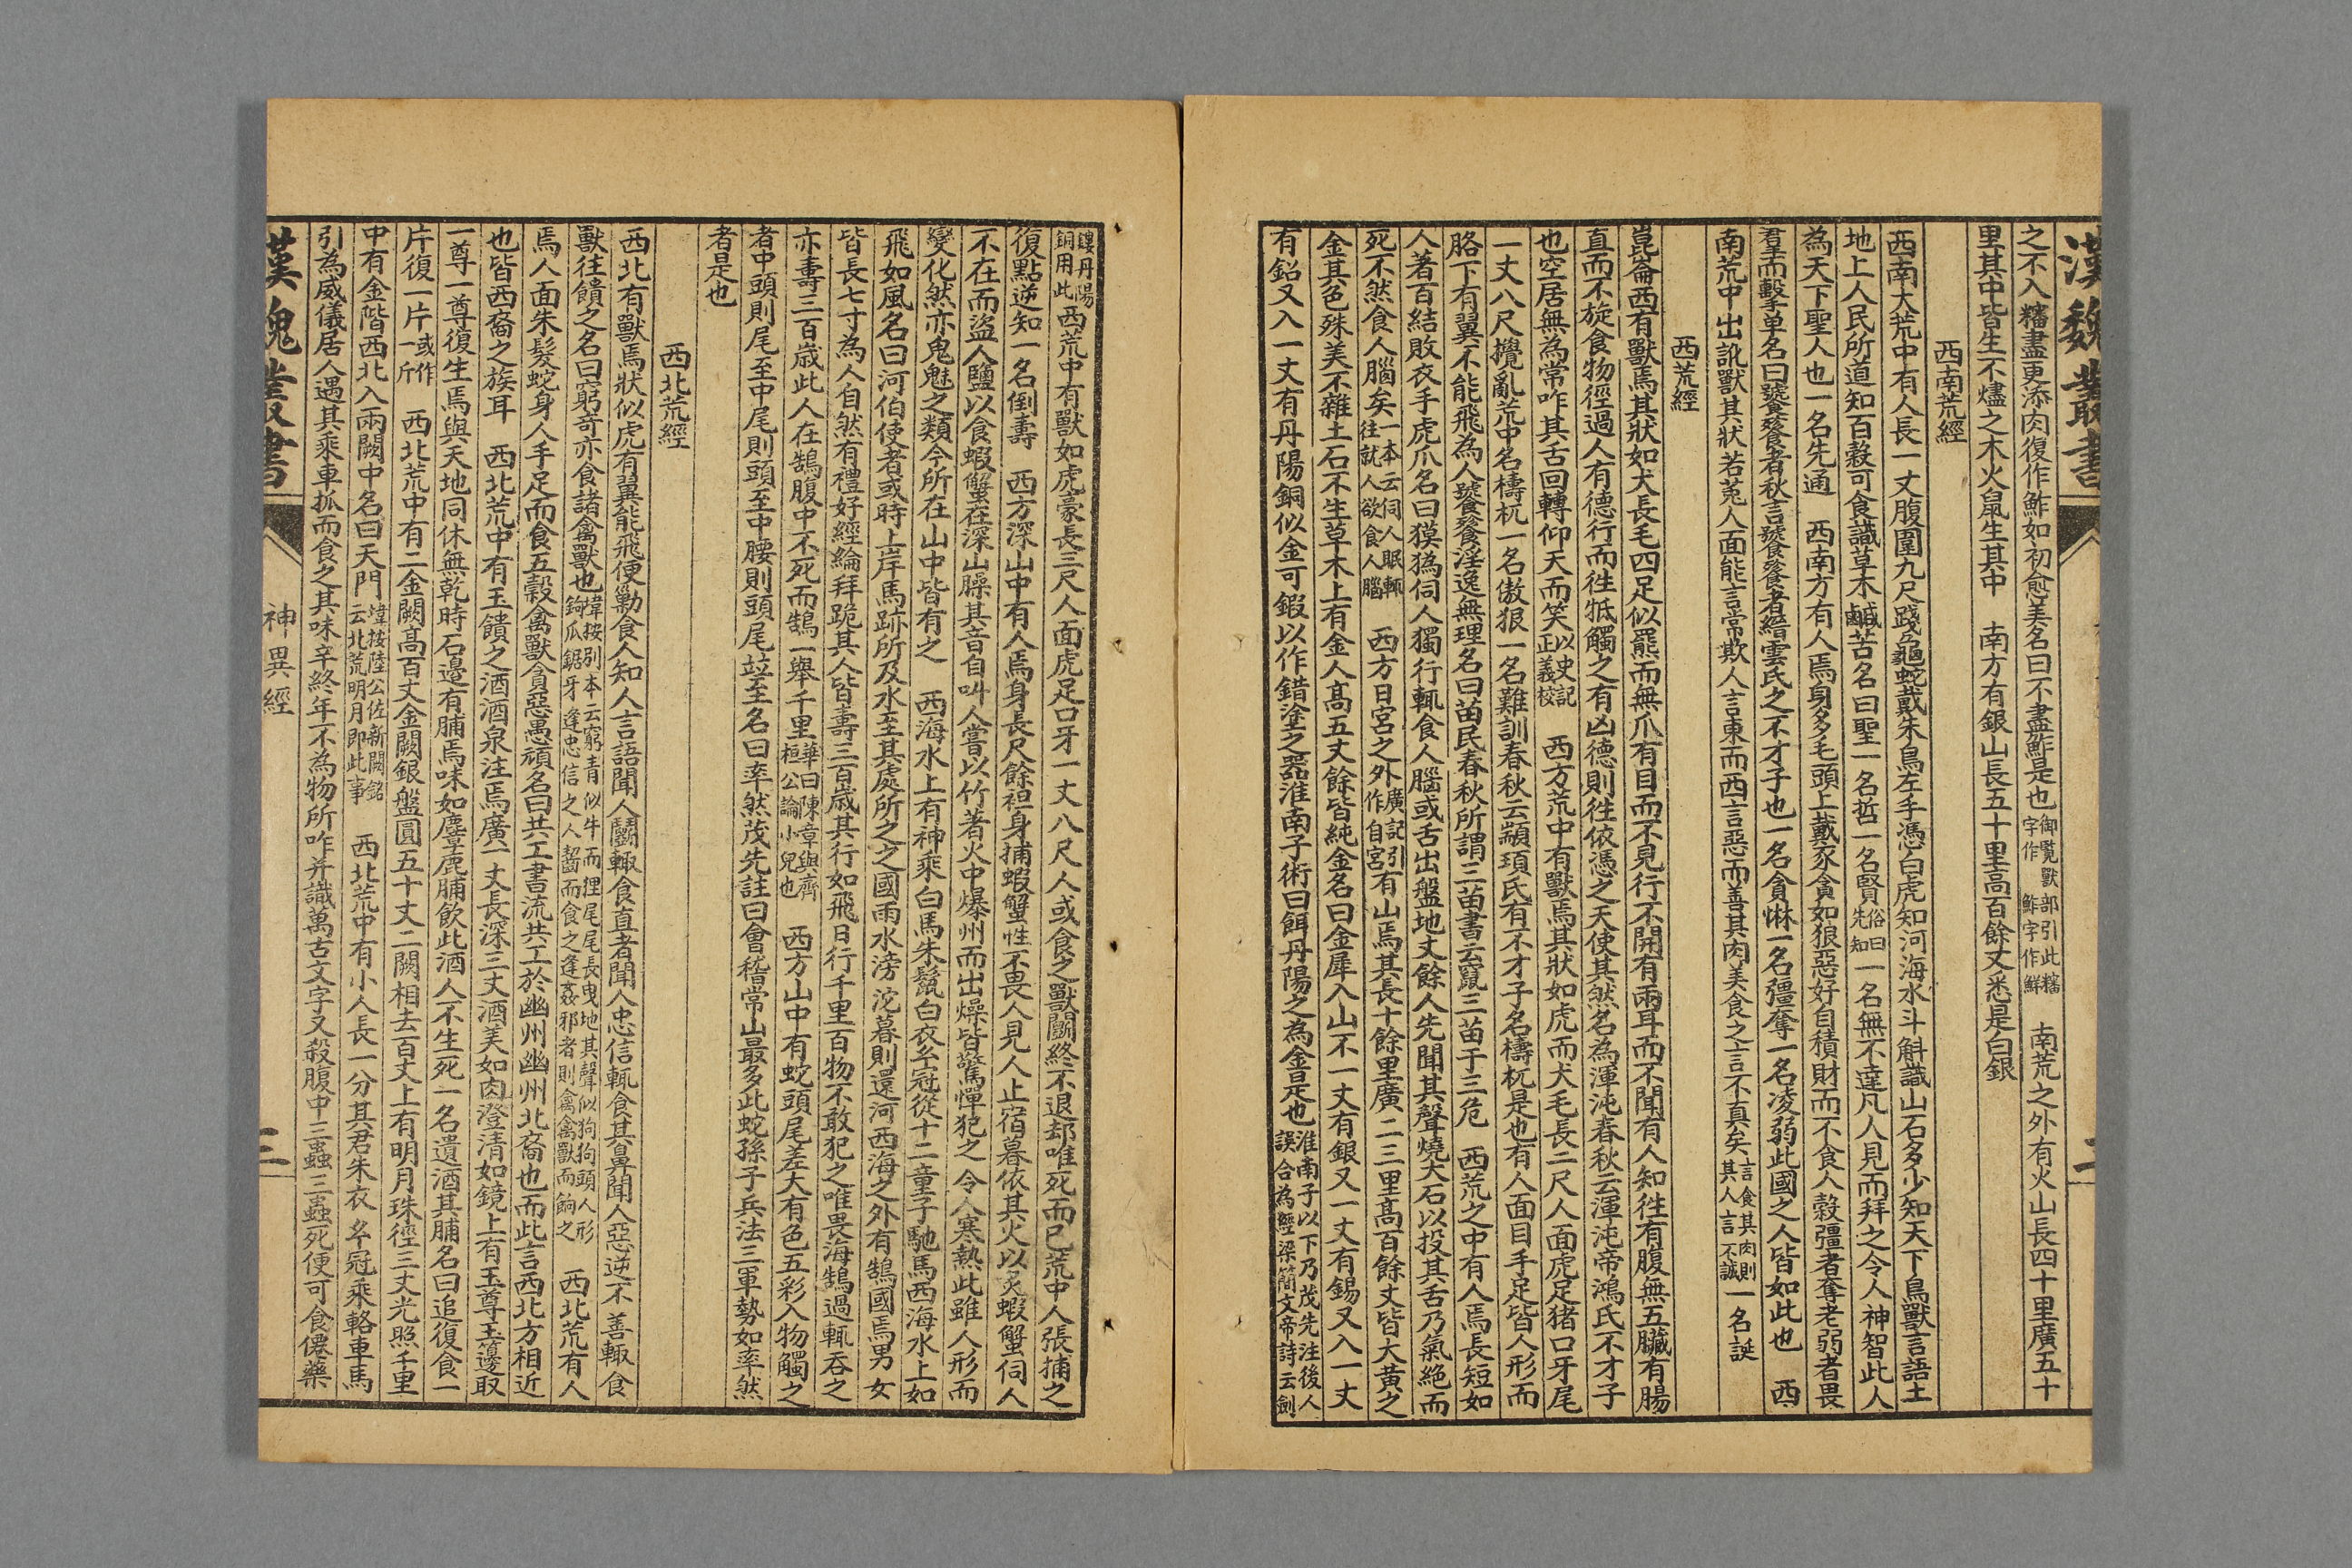 漢魏叢書
二
之不入糦盡更添肉復作鮓如初愈美名曰不盡鮓是也御覽獸部引此糦字作鮓字作鮮 南荒之外有火山長四十里廣五十
里其中皆生不燼之木火鼠生其中 南方有銀山長五十里高百餘丈悉是白銀
西南荒經
西南大荒中有人長一丈腹圍九尺踐龜蛇戴朱鳥左手憑白虎知河海水斗斛識山石多少知天下鳥獸言語土
地上人民所道知百穀可食識草木鹹苦名曰聖一名哲一名賢俗曰先知一名無不達凡人見而拜之令人神智此人
為天下聖人也一名先通 西南方有人焉身多毛頭上戴豕貪如狼惡好自積財而不食人穀彊者奪老弱者畏
羣而擊单名曰饕餮者秋言饕餮者縉雲氏之不才子也一名貪惏一名彊奪一名凌弱此國之人皆如此也 西
南荒中出訛獸其狀若菟人面能言常欺人言東而西言惡而善其肉美食之言不真矣言食其肉則其人言不誠一名誕
西荒經
崑崙西有獸焉其狀如犬長毛四足似羆而無爪有目而不見行不開有兩耳而不聞有人知徃有腹無五臟有腸
直而不旋食物徑過人有德行而徃牴觸之有凶德則徃依憑之天使其然名為渾沌春秋云渾沌帝鴻氏不才子
也空居無為常咋其舌回轉仰天而笑以史記正義校 西方荒中有獸焉其狀如虎而犬毛長二尺人面虎足猪口牙尾
一丈八尺攪亂荒中名檮杌一名傲狠一名難訓春秋云顓頊氏有不才子名檮杌是也有人面目手足皆人形而
胳下有翼不能飛為人饕餮淫逸無理名曰苗民春秋所謂三苗書云竄三苗于三危 西荒之中有人焉長短如
人著百結敗衣手虎爪名曰獏㺔伺人獨行輒食人腦或舌出盤地丈餘人先聞其聲燒大石以投其舌乃氣絶而
死不然食人腦矣一本云伺人眠輒往就人欲食人腦 西方日宮之外廣記引作自宮有山焉其長十餘里廣二三里高百餘丈皆大黃之
金其色殊美不雜土石不生草木上有金人高五丈餘皆純金名曰金犀入山下一丈有銀又一丈有錫又入一丈
有鉛又入一丈有丹陽銅似金可鍜以作錯塗之器淮南子術曰餌丹陽之為金是也淮南子以下乃茂先注後人誤合為經梁簡文帝詩云劍
鏤丹陽銅用此西荒中有獸如虎豪長三尺人面虎足口牙一丈八尺人或食之獸鬬終不退却唯死而已荒中人張捕之
復黠逆知一名倒壽 西方深山中有人焉身長尺餘袒身捕蝦蟹性不畏人見人止宿暮依其火以炙蝦蟹伺人
不在而盜人鹽以食蝦蟹在深山臊其音自叫人嘗以竹著火中爆州而出燥皆驚憚犯之令人寒熱此雖人形而
變化然亦鬼魅之類今所在山中皆有之 西海水上有神乘白馬朱鬛白衣玄冠從十二童子馳馬西海水上如
飛如風名曰河伯使者或時上岸馬跡所及水至其處所之之國雨水滂沱暮則還河西海之外有鵠國焉男女
皆長七寸為人自然有禮好經綸拜跪其人皆壽三百歲其行如飛日行千里百物不敢犯之唯畏海鵠過輒吞之
亦壽三百歲此人在鵠腹中不死而鵠一舉千里華曰陳章與齊桓公論小兒也 西方山中有蛇頭尾差大有色五彩入物觸之
者中頭則尾至中尾則頭至中腰則頭尾竝至名曰率然茂先註曰會稽常山最多此蛇孫子兵法三軍勢如率然
者是也
西北荒經
西北有獸焉狀似虎有翼能飛便勦食人知人言語聞人鬬輒食直者聞人忠信輒食其鼻聞人惡逆不善輒食
獸往饋之名曰窮奇亦食諸禽獸也煒按別本云窮奇似牛而狸尾尾長曳地其聲似狗狗頭人形鉤爪鋸牙逢忠信之人齧而食之逢姦邪者則禽禽獸而餉之 西北荒有人
焉人面朱髮蛇身人手足而食五穀禽獸貪惡愚頑名曰共工書流共工於幽州幽州北裔也而此言西北方相近
也皆西裔之族耳 西北荒中有玉饋之酒酒泉注焉廣一丈長深三丈酒美如肉澄清如鏡上有玉尊玉籩取
一尊一尊復生焉與天地同休無乾時石邊有脯焉味如麞鹿脯飲此酒人不生死一名遺酒其脯名曰追復食一
片復一片或作一斤 西北荒中有二金闕高百丈金闕銀盤圓五十丈二闕相去百丈上有明月珠徑三丈光照千里
中有金階西北入兩闕中名曰天門煒按陸公佐新闕銘云北荒明月即此事 西北荒中有小人長一分其君朱衣玄冠乘輅車馬
引為威儀居人遇其乘車抓而食之其味辛終年不為物所咋并識萬古文字又殺腹中三蟲三蟲死便可食僊藥
漢魏叢書
神異經
三